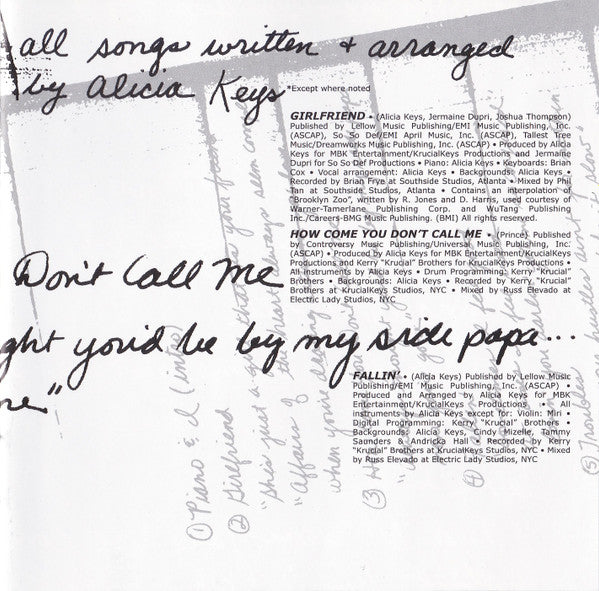 all songs written + arranged
by Alicia Keys *Except where noted
GIRLFRIEND • (Alicia Keys, Jermaine Dupri, Joshua Thompson)
Published by Lellow Music Publishing/EMI Music Publishing, Inc.
(ASCAP), So So Def/EMI April Music, Inc. (ASCAP), Tallest Tree
Music/Dreamworks Music Publishing, Inc. (ASCAP) • Produced by Alicia
Keys for MBK Entertainment/KrucialKeys Productions and Jermaine
Dupri for So So Def Productions • Piano: Alicia Keys • Keyboards: Brian
Cox • Vocal arrangement: Alicia Keys • Backgrounds: Alicia Keys •
Recorded by Brian Frye at Southside Studios, Atlanta • Mixed by Phil
Tan at Southside Studios, Atlanta • Contains an interpolation of
"Brooklyn Zoo", written by R. Jones and D. Harris, used courtesy of
Warner-Tamerlane Publishing Corp. and WuTang Publishing
Inc./Careers-BMG Music Publishing. (BMI) All rights reserved.
HOW COME YOU DON'T CALL ME • (Prince) Published
by Controversy Music Publishing/Universal Music Publishing, Inc.
(ASCAP) • Produced by Alicia Keys for MBK Entertainment/KrucialKeys
Productions and Kerry "Krucial" Brothers for KrucialKeys Productions •
All instruments by Alicia Keys • Drum Programming: Kerry "Krucial"
Brothers • Backgrounds: Alicia Keys • Recorded by Kerry "Krucial"
Brothers at KrucialKeys Studios, NYC • Mixed by Russ Elevado at
Electric Lady Studios, NYC
Don't Call Me
ght you'd be by my side papa...
ne"
FALLIN' • (Alicia Keys) Published by Lellow Music
Publishing/EMI Music Publishing, Inc. (ASCAP) •
Produced and Arranged by Alicia Keys for MBK
Entertainment/KrucialKeys Productions • All
instruments by Alicia Keys except for: Violin: Miri •
Digital Programming: Kerry "Krucial" Brothers •
Backgrounds: Alicia Keys, Cindy Mizelle, Tammy
Saunders & Andricka Hall • Recorded by Kerry
"Krucial" Brothers at KrucialKeys Studios, NYC • Mixed
by Russ Elevado at Electric Lady Studios, NYC
① Piano & I (intro)
② Girlfriend
"Affairs of the heart always seem
when you're
③
④
⑤ Troubles